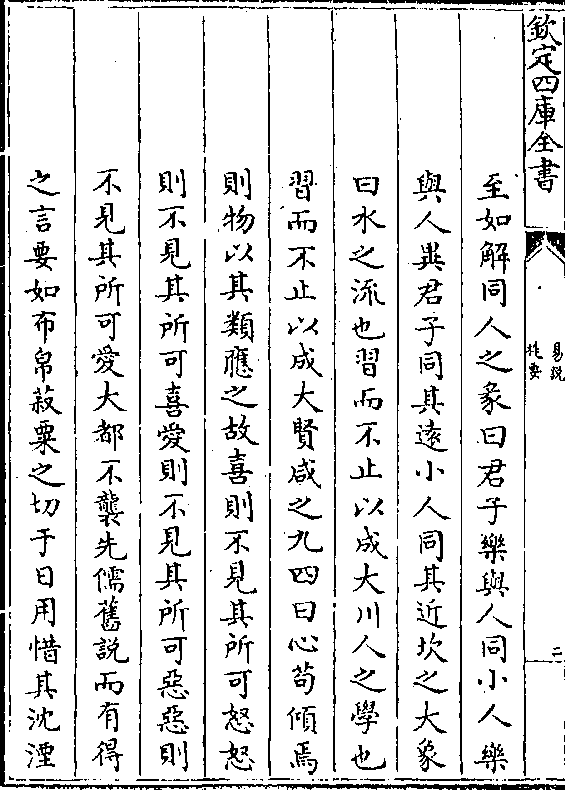 欽定四庫全書
易説
提要
二
至如解同人之彖曰君子樂與人同小人樂
與人異君子同其逺小人同其近坎之大象
曰水之流也習而不止以成大川人之學也
習而不止以成大賢咸之九四曰心苟傾焉
則物以其類應之故喜則不見其所可怒怒
則不見其所可喜愛則不見其所可惡惡則
不見其所可愛大都不襲先儒舊説而有得
之言要如布帛菽粟之切于日用惜其沈湮